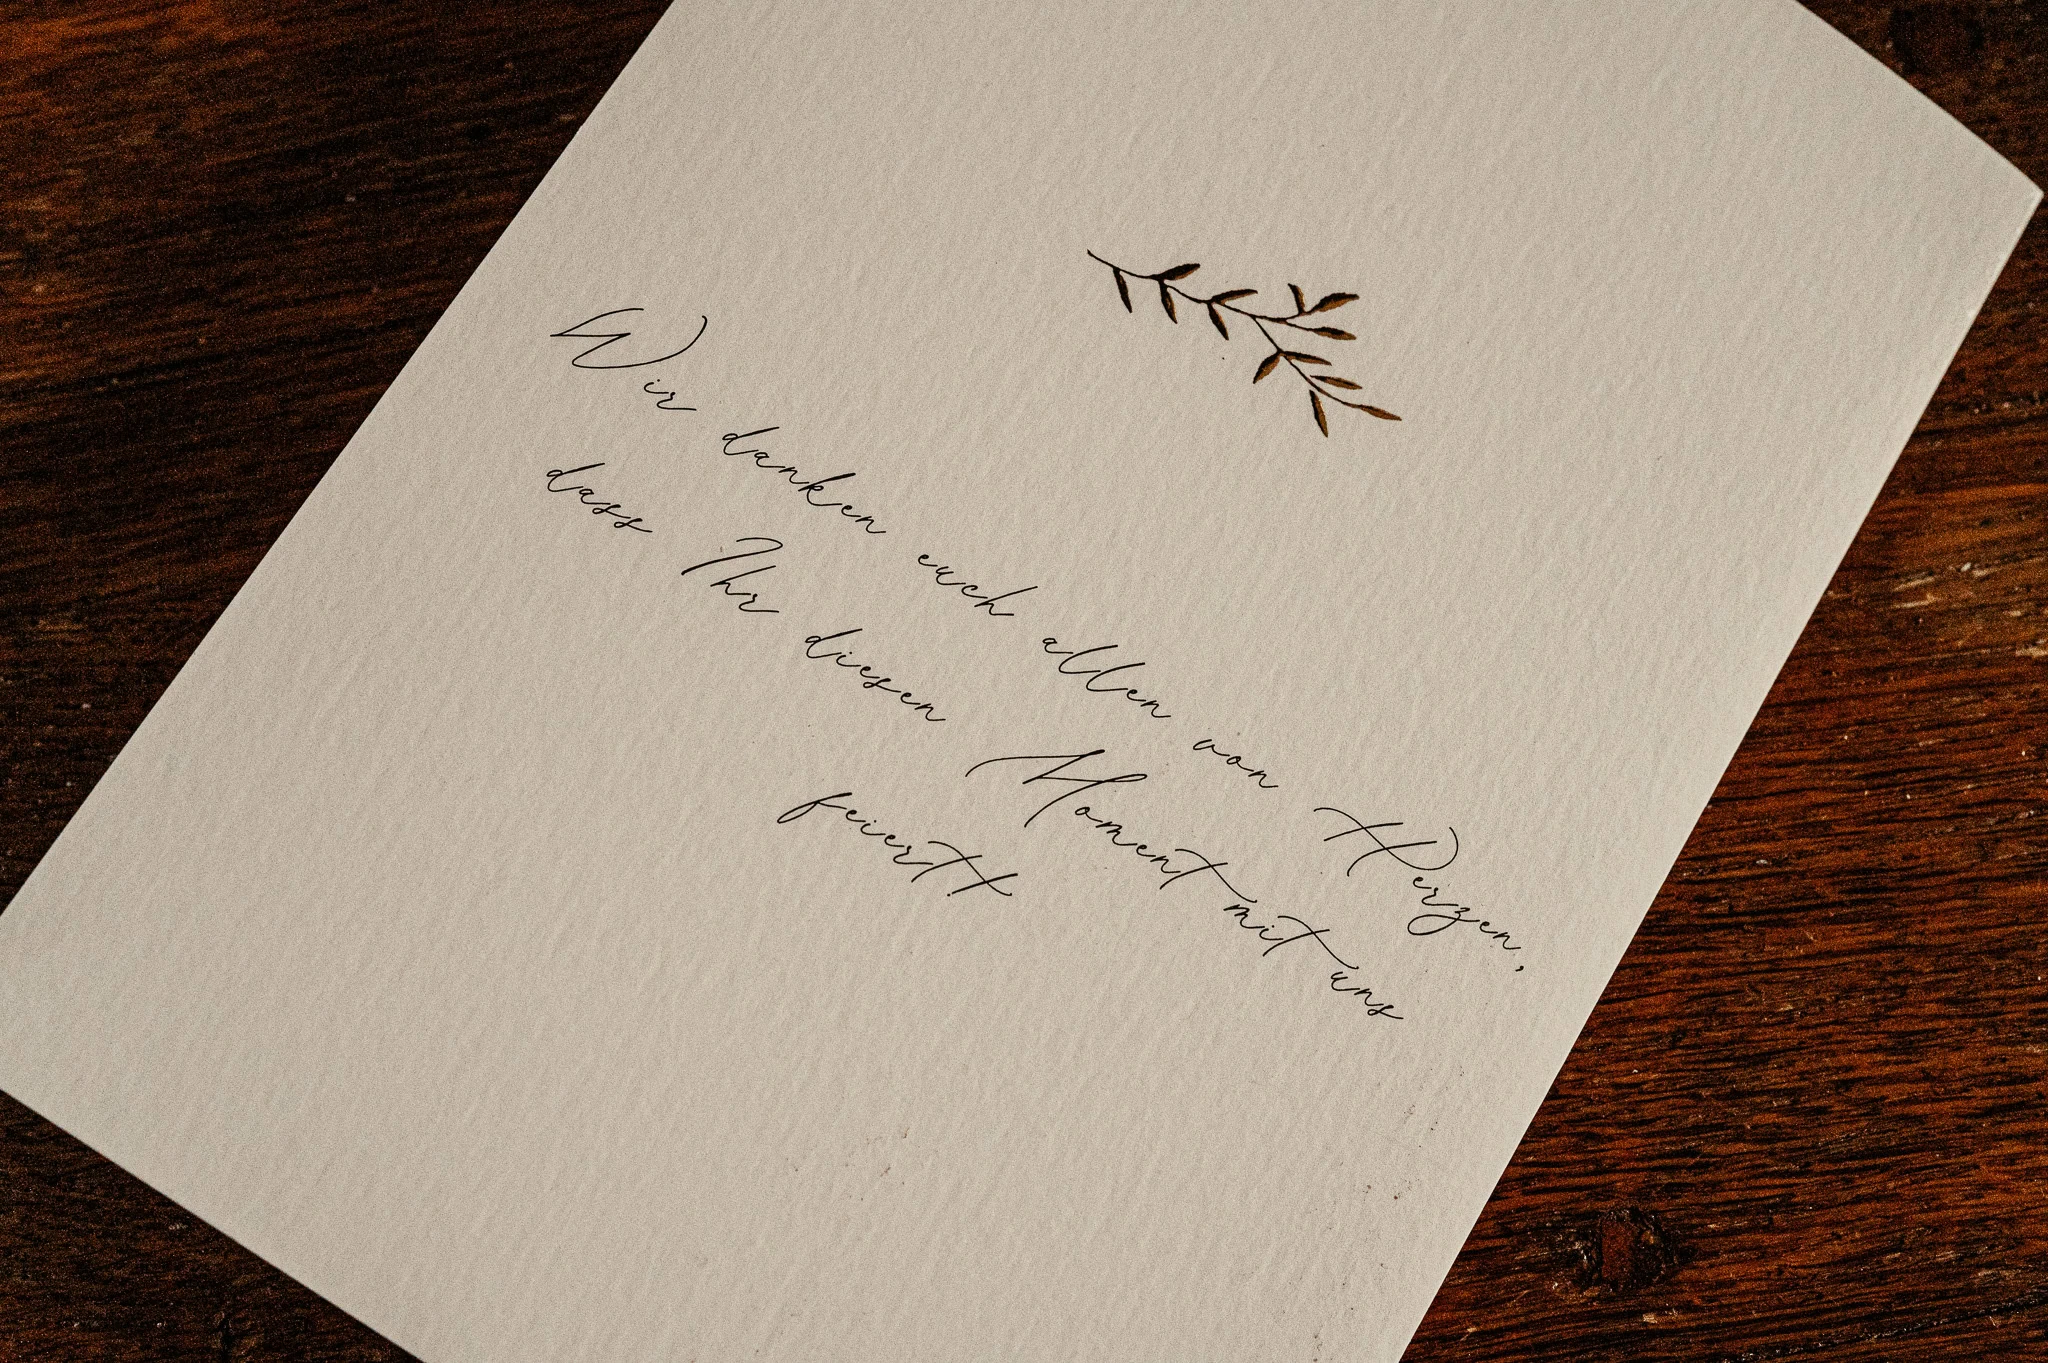 Wir danken euch allen von Herzen,
dass Ihr diesen Moment mit uns
feiert!